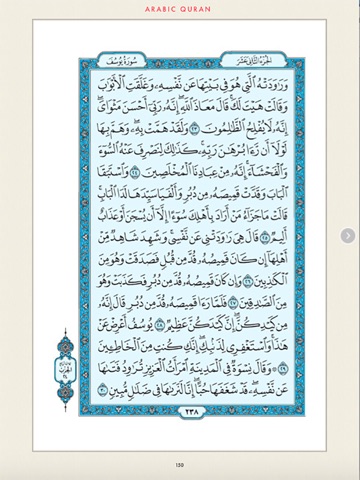 ARABIC QURAN
سُورَةُ يُوسُفَ
الجُزءُ الثَّانِي عَشَر
وَرَٰوَدَتْهُ ٱلَّتِى هُوَ فِى بَيْتِهَا عَن نَّفْسِهِۦ وَغَلَّقَتِ ٱلْأَبْوَٰبَ
وَقَالَتْ هَيْتَ لَكَ ۚ قَالَ مَعَاذَ ٱللَّهِ ۖ إِنَّهُۥ رَبِّىٓ أَحْسَنَ مَثْوَاىَ ۖ
إِنَّهُۥ لَا يُفْلِحُ ٱلظَّٰلِمُونَ ﴿٢٣﴾ وَلَقَدْ هَمَّتْ بِهِۦ ۖ وَهَمَّ بِهَا
لَوْلَآ أَن رَّءَا بُرْهَٰنَ رَبِّهِۦ ۚ كَذَٰلِكَ لِنَصْرِفَ عَنْهُ ٱلسُّوٓءَ
وَٱلْفَحْشَآءَ ۚ إِنَّهُۥ مِنْ عِبَادِنَا ٱلْمُخْلَصِينَ ﴿٢٤﴾ وَٱسْتَبَقَا
ٱلْبَابَ وَقَدَّتْ قَمِيصَهُۥ مِن دُبُرٍ وَأَلْفَيَا سَيِّدَهَا لَدَا ٱلْبَابِ ۚ
قَالَتْ مَا جَزَآءُ مَنْ أَرَادَ بِأَهْلِكَ سُوٓءًا إِلَّآ أَن يُسْجَنَ أَوْ عَذَابٌ
أَلِيمٌ ﴿٢٥﴾ قَالَ هِىَ رَٰوَدَتْنِى عَن نَّفْسِى ۚ وَشَهِدَ شَاهِدٌ مِّنْ
أَهْلِهَآ إِن كَانَ قَمِيصُهُۥ قُدَّ مِن قُبُلٍ فَصَدَقَتْ وَهُوَ مِنَ
ٱلْكَٰذِبِينَ ﴿٢٦﴾ وَإِن كَانَ قَمِيصُهُۥ قُدَّ مِن دُبُرٍ فَكَذَبَتْ وَهُوَ
مِنَ ٱلصَّٰدِقِينَ ﴿٢٧﴾ فَلَمَّا رَءَا قَمِيصَهُۥ قُدَّ مِن دُبُرٍ قَالَ إِنَّهُۥ
مِن كَيْدِكُنَّ ۖ إِنَّ كَيْدَكُنَّ عَظِيمٌ ﴿٢٨﴾ يُوسُفُ أَعْرِضْ عَنْ
هَٰذَا ۚ وَٱسْتَغْفِرِى لِذَنۢبِكِ ۖ إِنَّكِ كُنتِ مِنَ ٱلْخَاطِـِٔينَ
﴿٢٩﴾ ۞ وَقَالَ نِسْوَةٌ فِى ٱلْمَدِينَةِ ٱمْرَأَتُ ٱلْعَزِيزِ تُرَٰوِدُ فَتَىٰهَا
عَن نَّفْسِهِۦ ۖ قَدْ شَغَفَهَا حُبًّا ۖ إِنَّا لَنَرَىٰهَا فِى ضَلَٰلٍ مُّبِينٍ ﴿٣٠﴾
٢٣٨
150